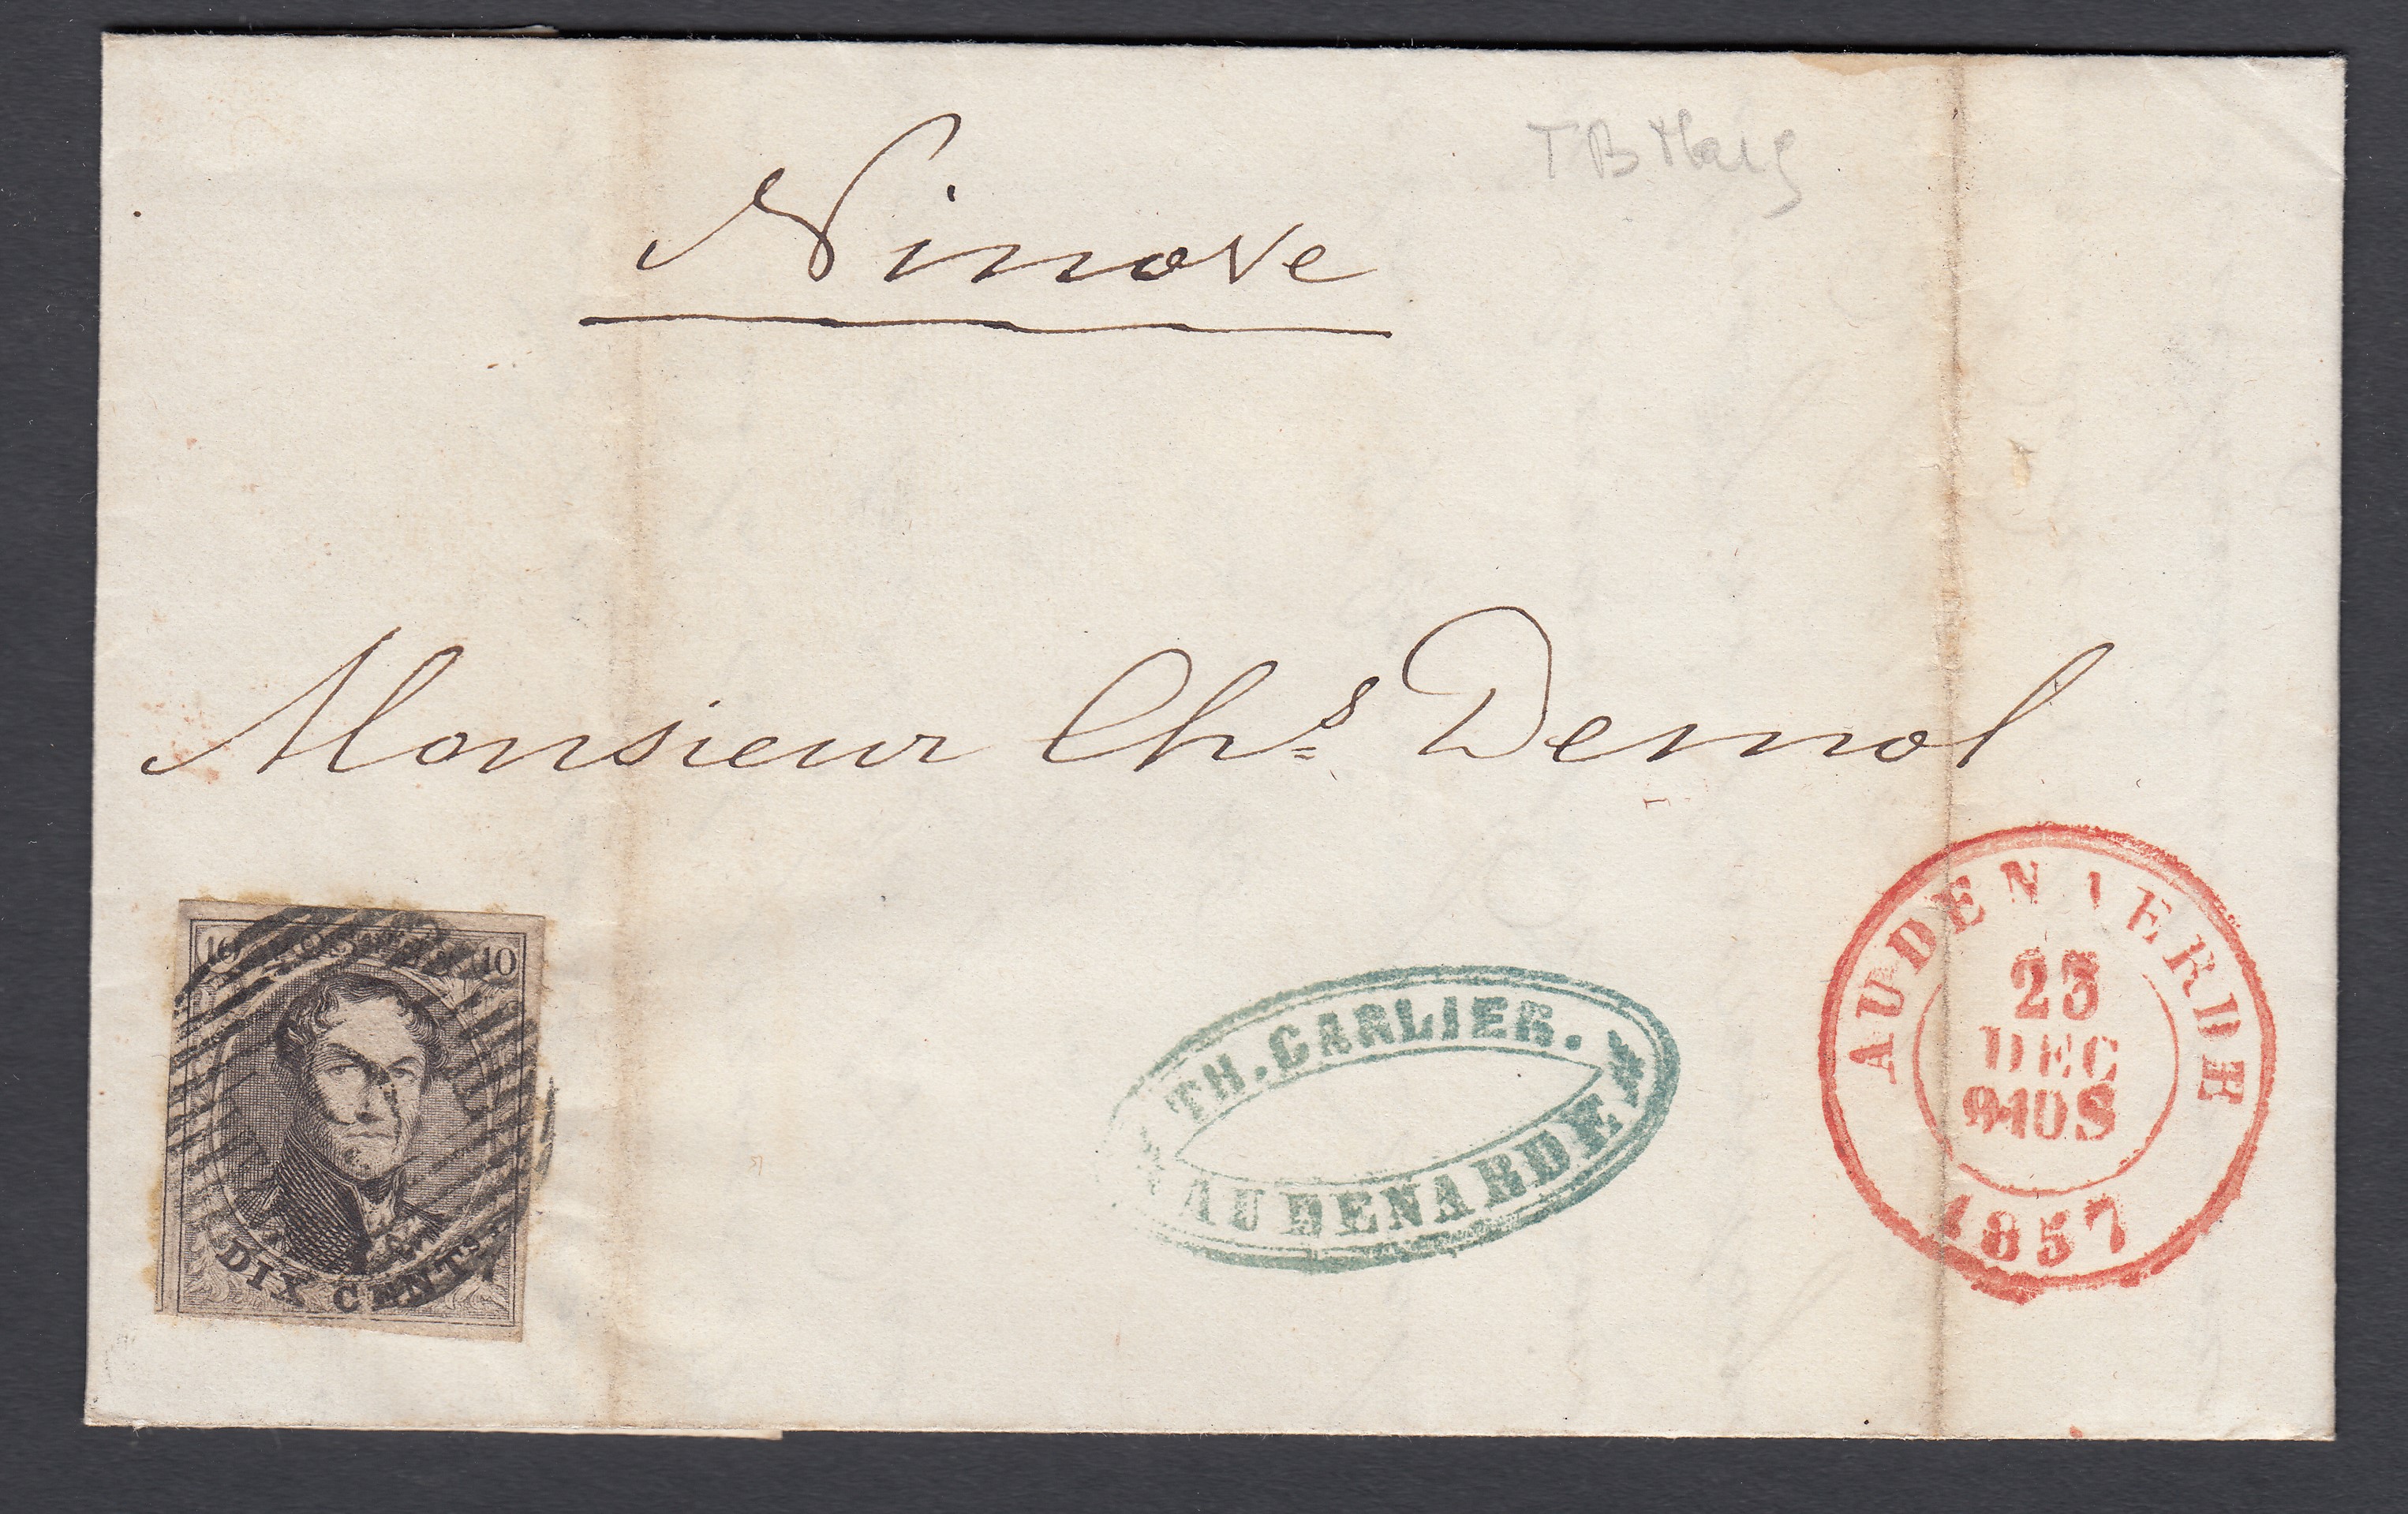 Ninove
T B Marg
Monsieur Chs Demol
10 POSTES 10
DIX CENTS.
TH. CARLIER.
AUDENARDE
AUDENAERDE
23
DEC
1857